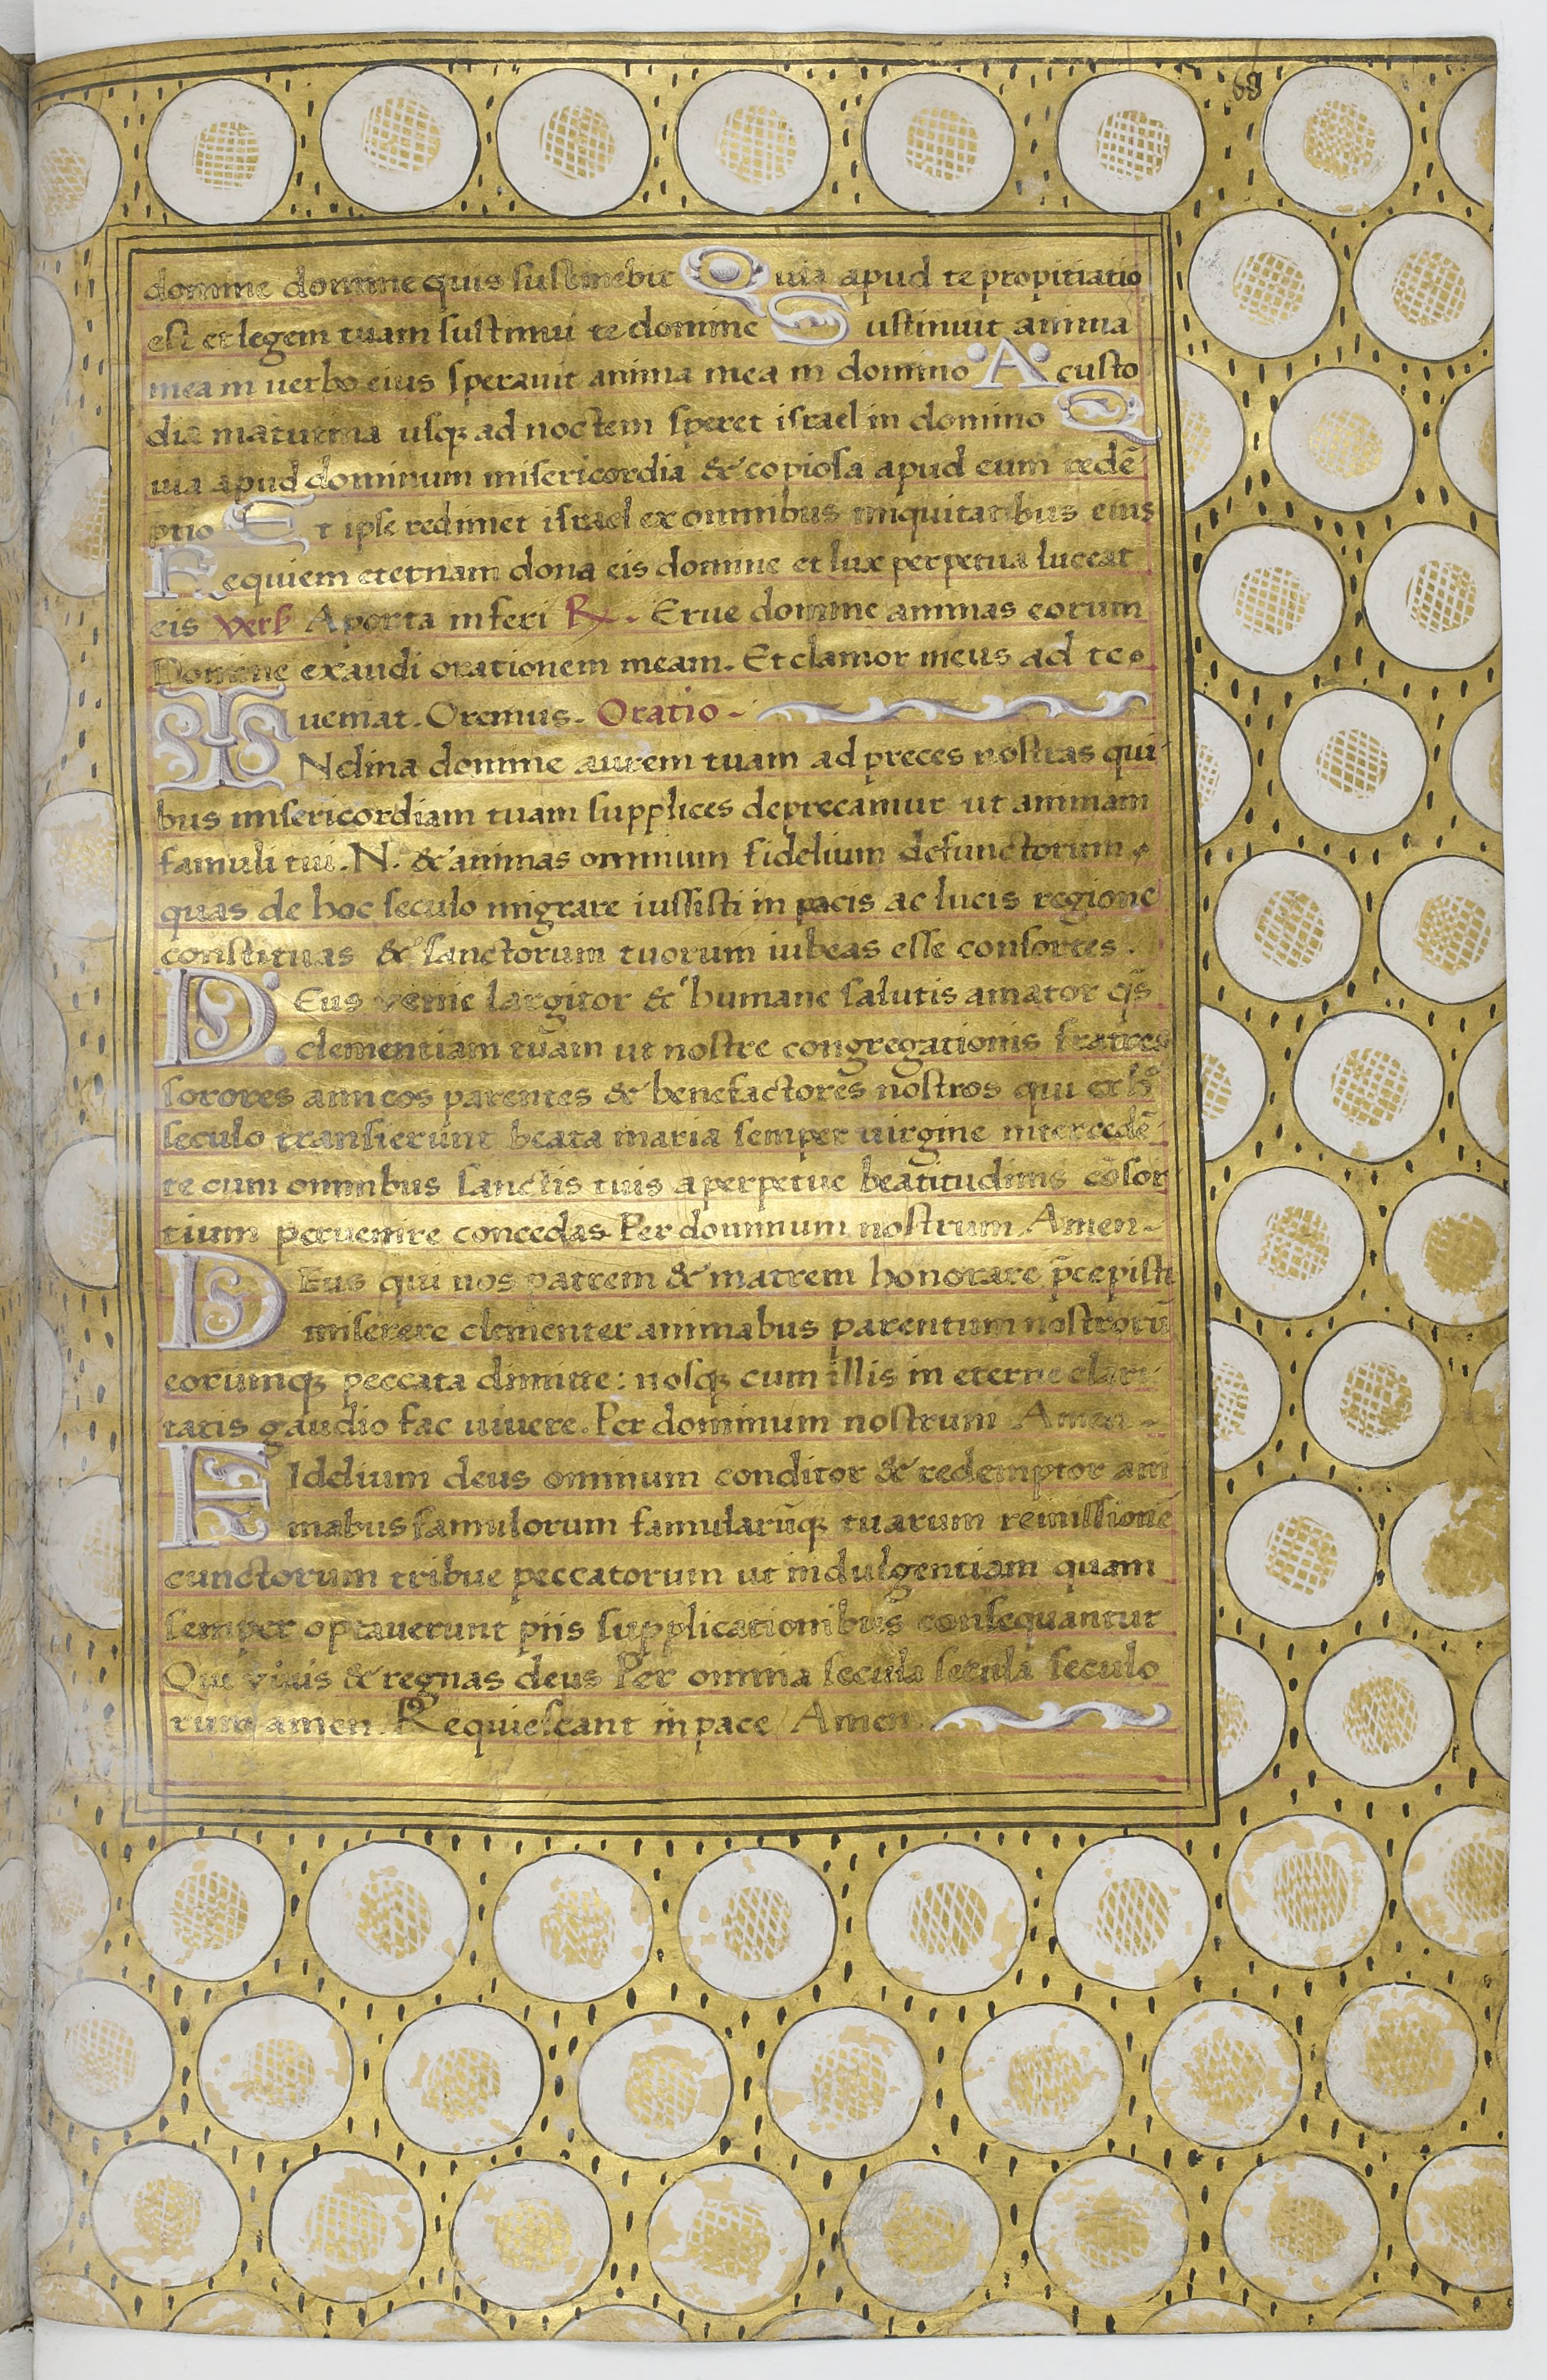 68
domine domine quis sustinebit Quia apud te propitiatio
est et legem tuam sustinui te domine Sustinuit anima
mea in uerbo eius sperauit anima mea in domino A custo
dia matutina usq; ad noctem speret israel in domino Q
uia apud dominum misericordia & copiosa apud eum redē
ptio Et ipse redimet israel ex omnibus iniquitatibus eius
Requiem eternam dona eis domine et lux perpetua luceat
eis Vers A porta inferi ℟. Erue domine animas eorum
Domine exaudi orationem meam. Et clamor meus ad te.
ueniat. Oremus. Oratio
INclina domine aurem tuam ad preces nostras qui
bus misericordiam tuam supplices deprecamur ut animam
famuli tui. N. & animas omnium fidelium defunctorum
quas de hoc seculo migrare iussisti in pacis ac lucis regione
constituas & sanctorum tuorum iubeas esse consortes.
DEus venie largitor & humane salutis amator qs̄
clementiam tuam ut nostre congregationis fratres
sorores amicos parentes & benefactores nostros qui ex h°
seculo transierunt beata maria semper uirgine intercedē
te cum omnibus sanctis tuis a perpetue beatitudinis cōsor
tium peruenire concedas Per dominum nostrum. Amen.
DEus qui nos patrem & matrem honorare p̄cepisti
miserere clementer animabus parentum nostrorū
eorumq; peccata dimitte: nosq; cum illis in eterne clari
tatis gaudio fac uiuere. Per dominum nostrum Amen.
FIdelium deus omnium conditor & redemptor ani
mabus famulorum famularūq; tuarum remissionē
cunctorum tribue peccatorum ut indulgentiam quam
semper optauerunt piis supplicationibus consequantur
Qui viuis & regnas deus Per omnia secula secula seculo
rum amen. Requiescant in pace Amen.